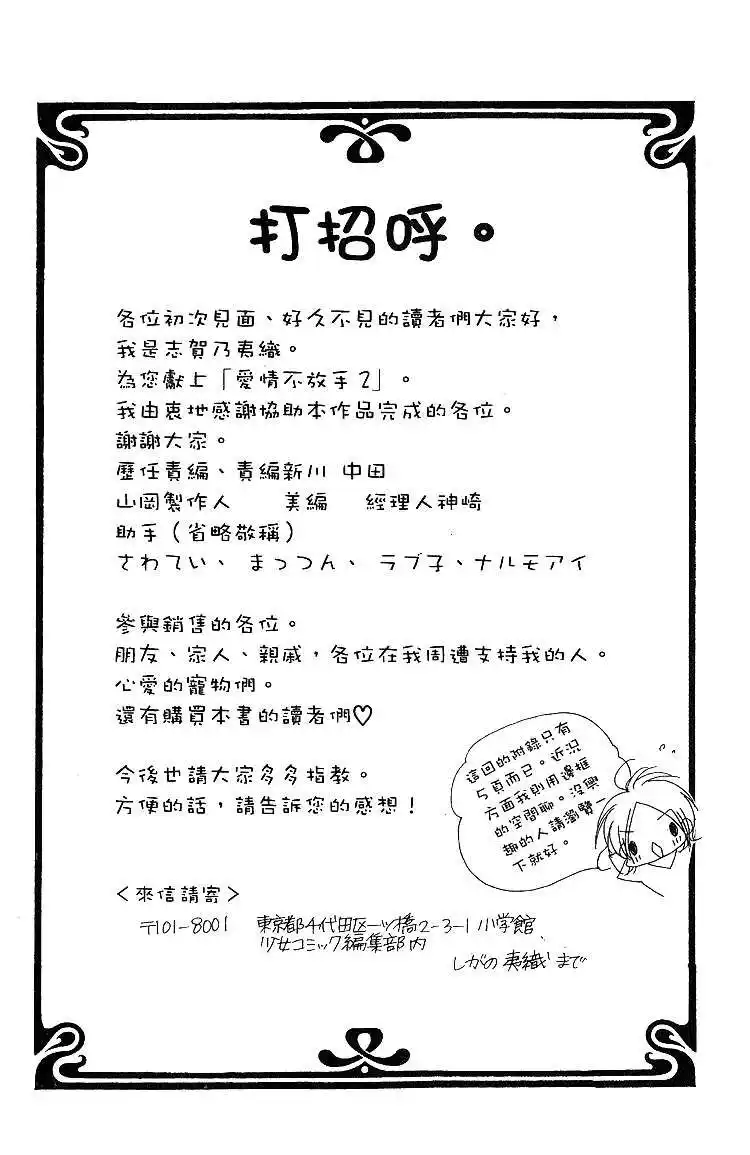 打招呼。
各位初次見面、好久不見的讀者們大家好，
我是志賀乃夷織。
為您獻上「愛情不放手2」。
我由衷地感謝協助本作品完成的各位。
謝謝大家。
歷任責編、責編新川 中田
山岡製作人 美編 經理人神崎
助手（省略敬稱）
さわてい、まっつん、ラブ子、ナルモアイ
參與銷售的各位。
朋友、家人、親戚，各位在我周遭支持我的人。
心愛的寵物們。
還有購買本書的讀者們♡
今後也請大家多多指教。
方便的話，請告訴您的感想！
這回的附錄只有
5頁而已。近況
方面我則用邊框
的空間聊。沒興
趣的人請瀏覽
下就好。
＜來信請寄＞
〒101-8001 東京都千代田区一ツ橋2-3-1 小学館
少女コミック編集部内
しがの夷織 まで